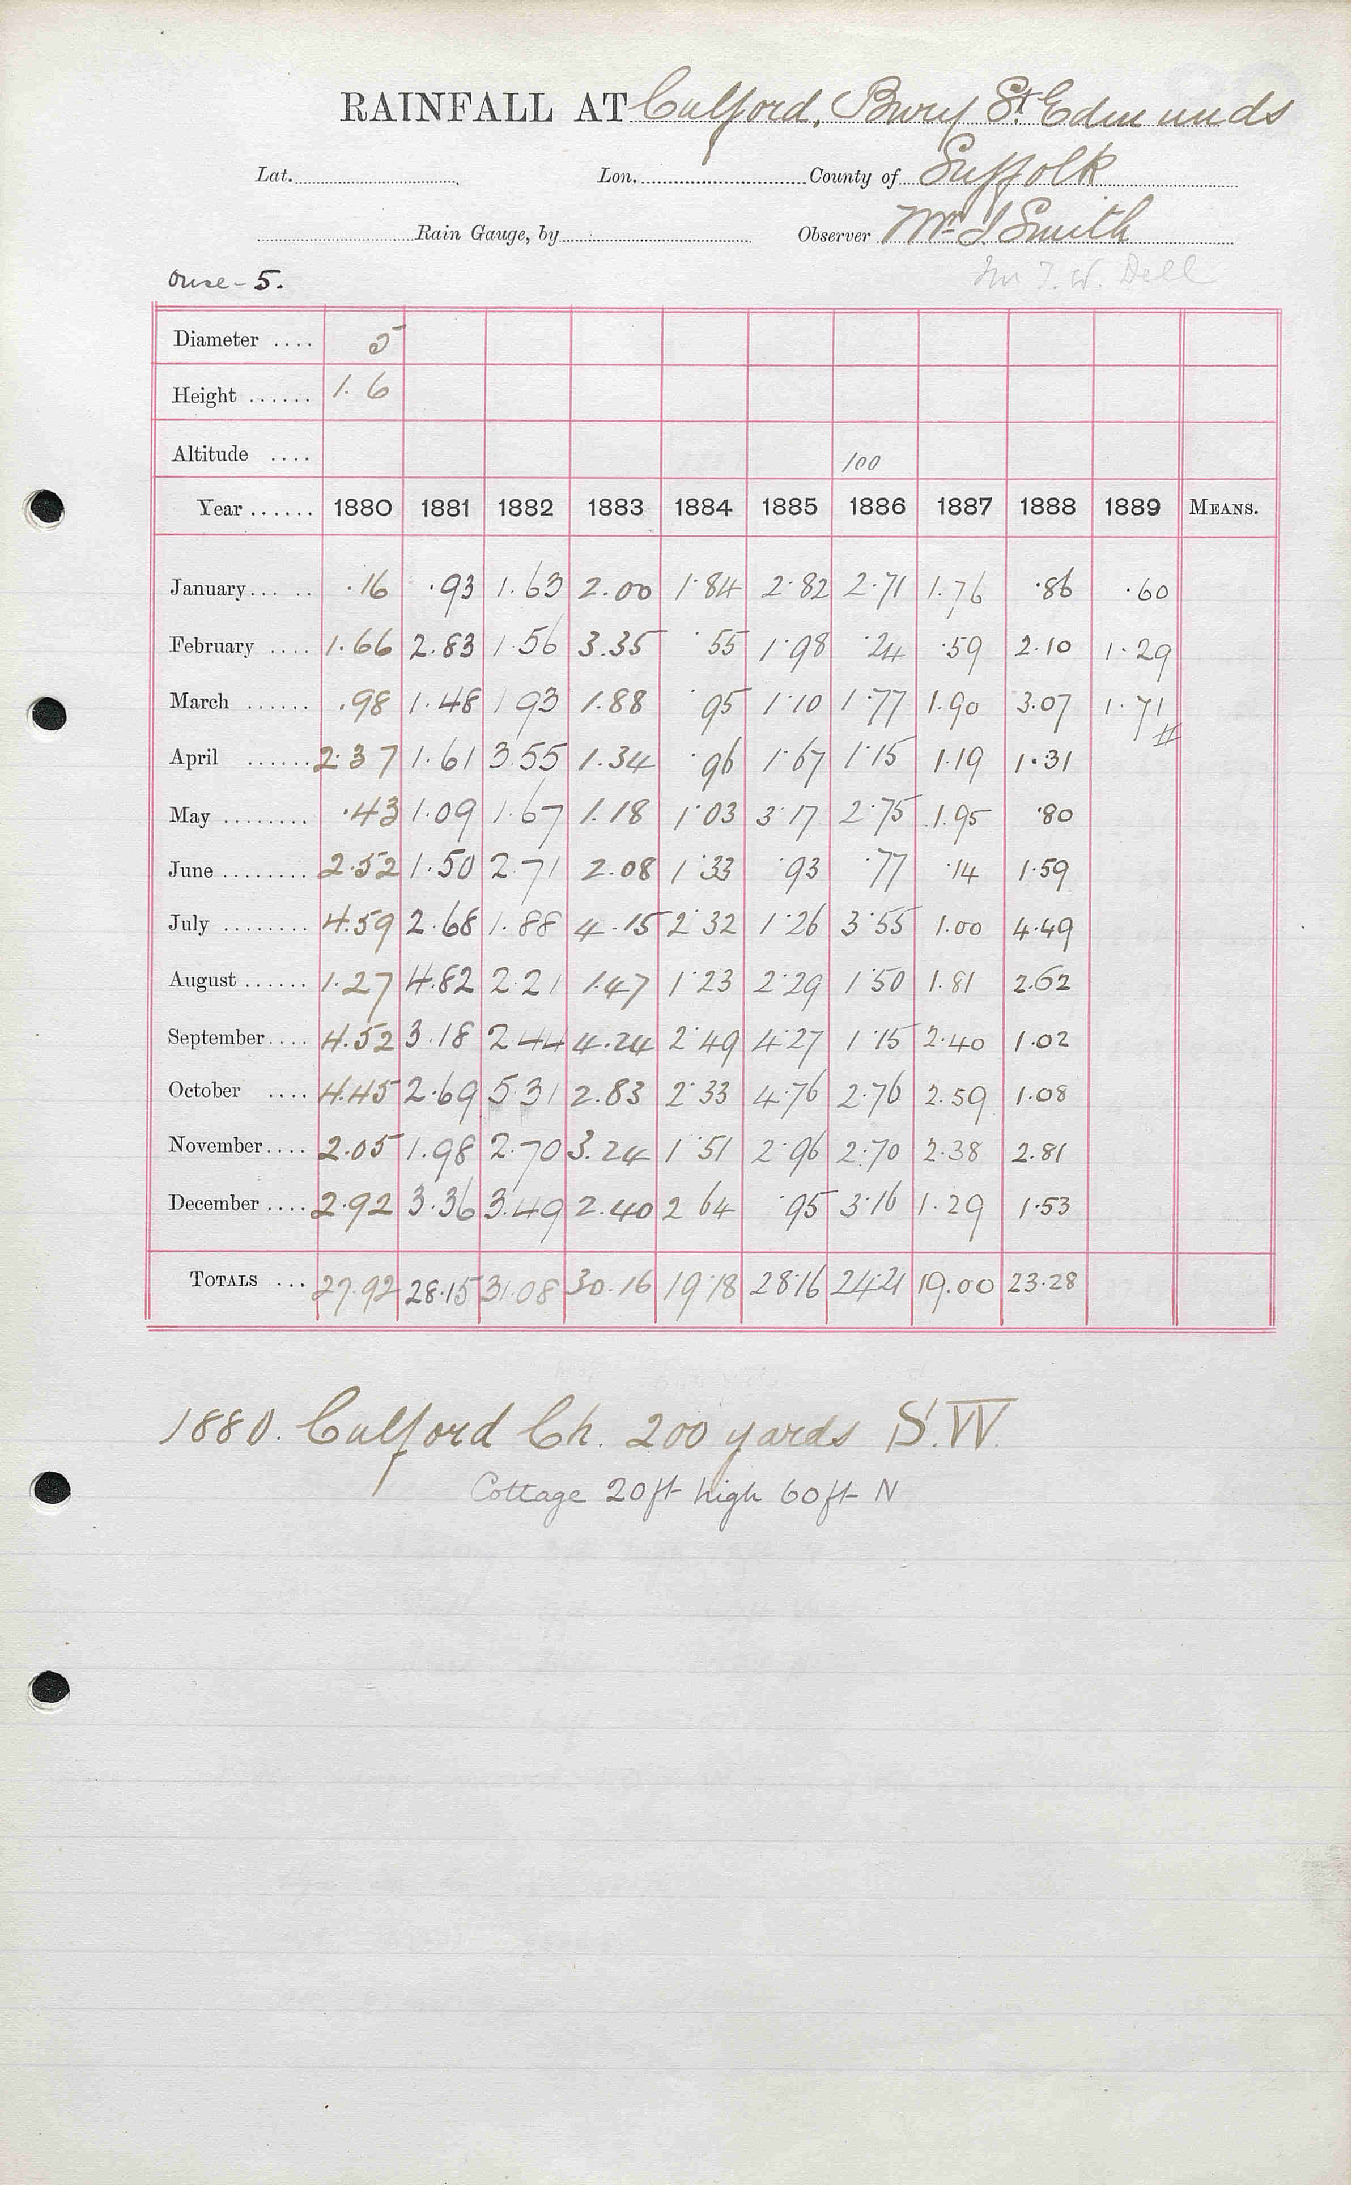 RAINFALL AT Culford, Bury St. Edmunds
Lat. Lon. County of Suffolk
Rain Gauge, by Observer Mr. J Smith
Mr T. W. Dell
Ouse - 5.
Diameter .... 5
Height ...... 1.6
Altitude .... 100
Year ...... 1880 1881 1882 1883 1884 1885 1886 1887 1888 1889 MEANS.
January ... .. .16 .93 1.63 2.00 1.84 2.82 2.71 1.76 .86 .60
February .... 1.66 2.83 1.56 3.35 .55 1.98 .24 .59 2.10 1.29
March ...... .98 1.48 1.93 1.88 .95 1.10 1.77 1.90 3.07 1.71 #
April ...... 2.37 1.61 3.55 1.34 .96 1.67 1.15 1.19 1.31
May ........ .43 1.09 1.67 1.18 1.03 3.17 2.75 1.95 .80
June ........ 2.52 1.50 2.71 2.08 1.33 .93 .77 .14 1.59
July ........ 4.59 2.68 1.88 4.15 2.32 1.26 3.55 1.00 4.49
August ...... 1.27 4.82 2.21 1.47 1.23 2.29 1.50 1.81 2.62
September .... 4.52 3.18 2.44 4.24 2.49 4.27 1.15 2.40 1.02
October .... 4.45 2.69 5.31 2.83 2.33 4.76 2.76 2.59 1.08
November .... 2.05 1.98 2.70 3.24 1.51 2.96 2.70 2.38 2.81
December .... 2.92 3.36 3.49 2.40 2.64 .95 3.16 1.29 1.53
TOTALS ... 27.92 28.15 31.08 30.16 19.18 28.16 24.21 19.00 23.28
1880. Culford Ch. 200 yards S.W.
Cottage 20ft high 60ft N